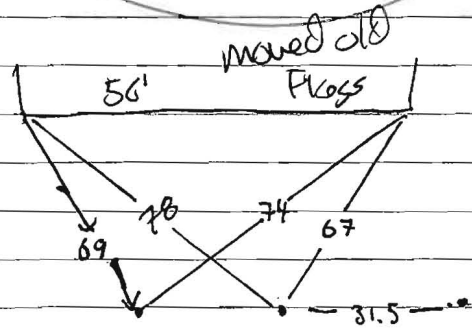 moved old
56' Flags
78 74
67
69
31.5